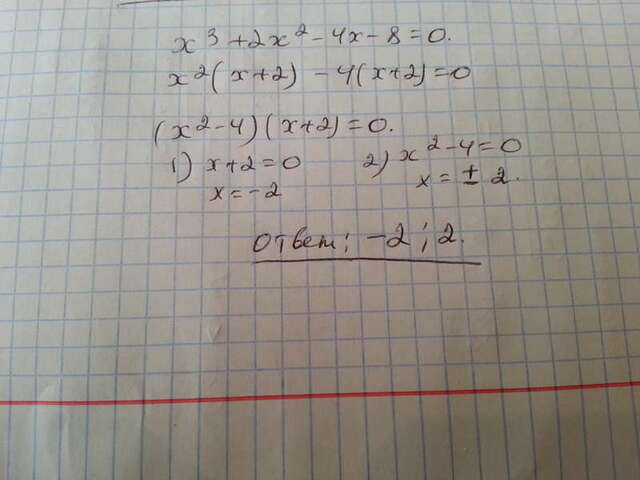 x³ + 2x² - 4x - 8 = 0.
x²(x+2) - 4(x+2) = 0
(x² - 4)(x+2) = 0.
1) x+2 = 0 2) x² - 4 = 0
x = -2 x = ± 2.
Ответ: -2 ; 2.